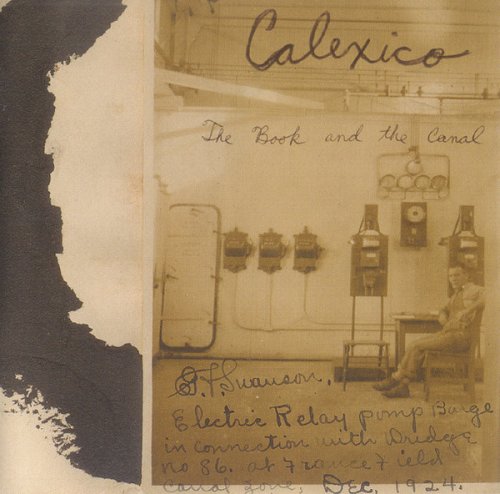 Calexico
The Book and the Canal
S.F. Swanson.
Electric Relay pump Barge
in connection with Dredge
no 86. at France Field
Canal Zone, Dec. 1924.